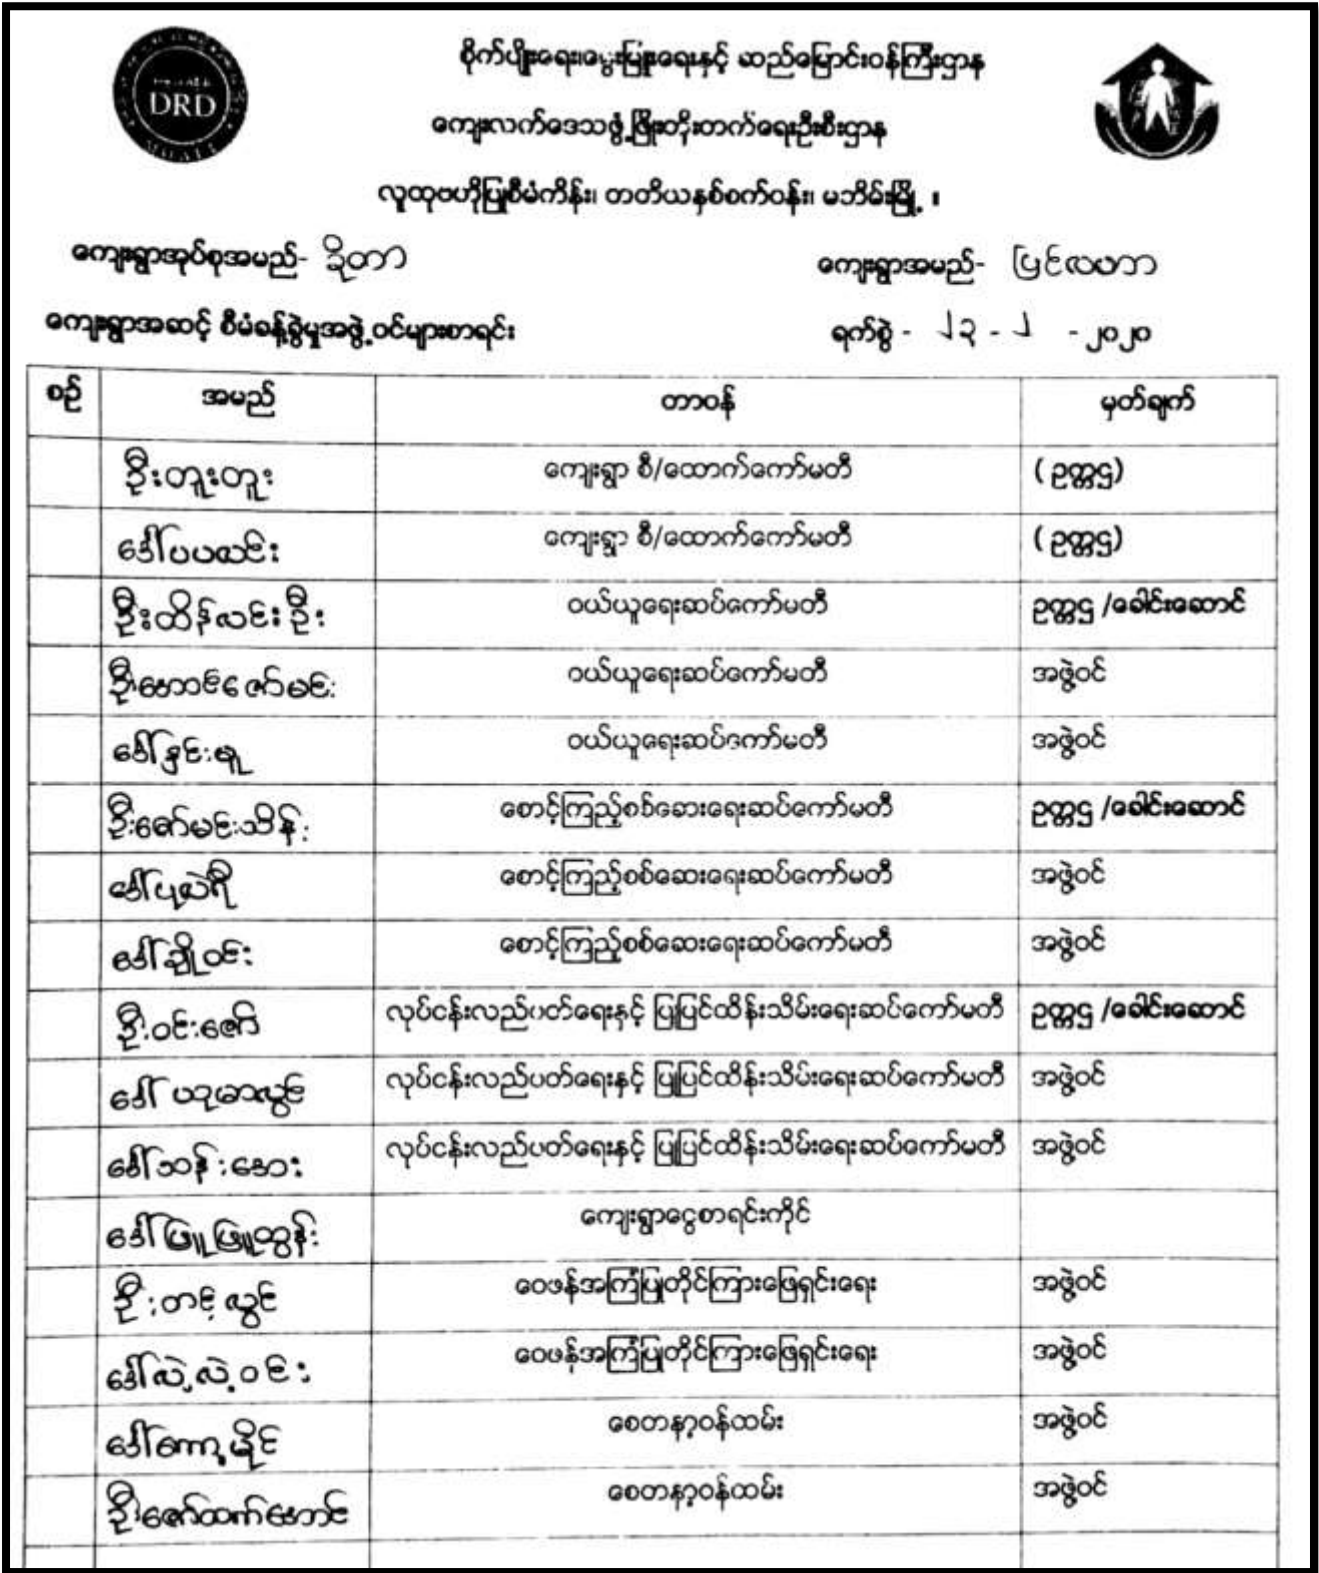 DRD
စိုက်ပျိုးရေး၊မွေးမြူရေးနှင့် ဆည်မြောင်းဝန်ကြီးဌာန
ကျေးလက်ဒေသဖွံ့ဖြိုးတိုးတက်ရေးဦးစီးဌာန
လူထုဗဟိုပြုစီမံကိန်း၊ တတိယနှစ်စက်ဝန်း၊ မဘိမ်းမြို့ ။
ကျေးရွာအုပ်စုအမည်- ဒိုတာ ကျေးရွာအမည်- ပြင်လဟာ
ကျေးရွာအဆင့် စီမံခန့်ခွဲမှုအဖွဲ့ဝင်များစာရင်း ရက်စွဲ - ၂၃ - ၂ - ၂၀၂၀
စဉ် အမည် တာဝန် မှတ်ချက်
ဦးတူးတူး ကျေးရွာ စီ/ထောက်ကော်မတီ ( ဥက္ကဌ)
ဒေါ်ပပလင်း ကျေးရွာ စီ/ထောက်ကော်မတီ ( ဥက္ကဌ)
ဦးထိန်လင်းဦး ဝယ်ယူရေးဆပ်ကော်မတီ ဥက္ကဌ /ခေါင်းဆောင်
ဦးအောင်ဇော်မင်း ဝယ်ယူရေးဆပ်ကော်မတီ အဖွဲ့ဝင်
ဒေါ်နှင်းမူ ဝယ်ယူရေးဆပ်ကော်မတီ အဖွဲ့ဝင်
ဦးဇော်မင်းသိန်း စောင့်ကြည့်စစ်ဆေးရေးဆပ်ကော်မတီ ဥက္ကဌ /ခေါင်းဆောင်
ဒေါ် စောင့်ကြည့်စစ်ဆေးရေးဆပ်ကော်မတီ အဖွဲ့ဝင်
ဒေါ်ချိုဝင်း စောင့်ကြည့်စစ်ဆေးရေးဆပ်ကော်မတီ အဖွဲ့ဝင်
ဦးဝင်းဇော် လုပ်ငန်းလည်ပတ်ရေးနှင့် ပြုပြင်ထိန်းသိမ်းရေးဆပ်ကော်မတီ ဥက္ကဌ /ခေါင်းဆောင်
ဒေါ် ယဉုမာလွင် လုပ်ငန်းလည်ပတ်ရေးနှင့် ပြုပြင်ထိန်းသိမ်းရေးဆပ်ကော်မတီ အဖွဲ့ဝင်
ဒေါ်သန်းအေး လုပ်ငန်းလည်ပတ်ရေးနှင့် ပြုပြင်ထိန်းသိမ်းရေးဆပ်ကော်မတီ အဖွဲ့ဝင်
ဒေါ်ဖြူဖြူထွန်း ကျေးရွာငွေစာရင်းကိုင်
ဦးတင့်လွင် ဝေဖန်အကြံပြုတိုင်ကြားဖြေရှင်းရေး အဖွဲ့ဝင်
ဒေါ်လဲ့လဲ့ဝင်း ဝေဖန်အကြံပြုတိုင်ကြားဖြေရှင်းရေး အဖွဲ့ဝင်
ဒေါ်ကော့မိုင် စေတနာ့ဝန်ထမ်း အဖွဲ့ဝင်
ဦးဇော်ထက်အောင် စေတနာ့ဝန်ထမ်း အဖွဲ့ဝင်